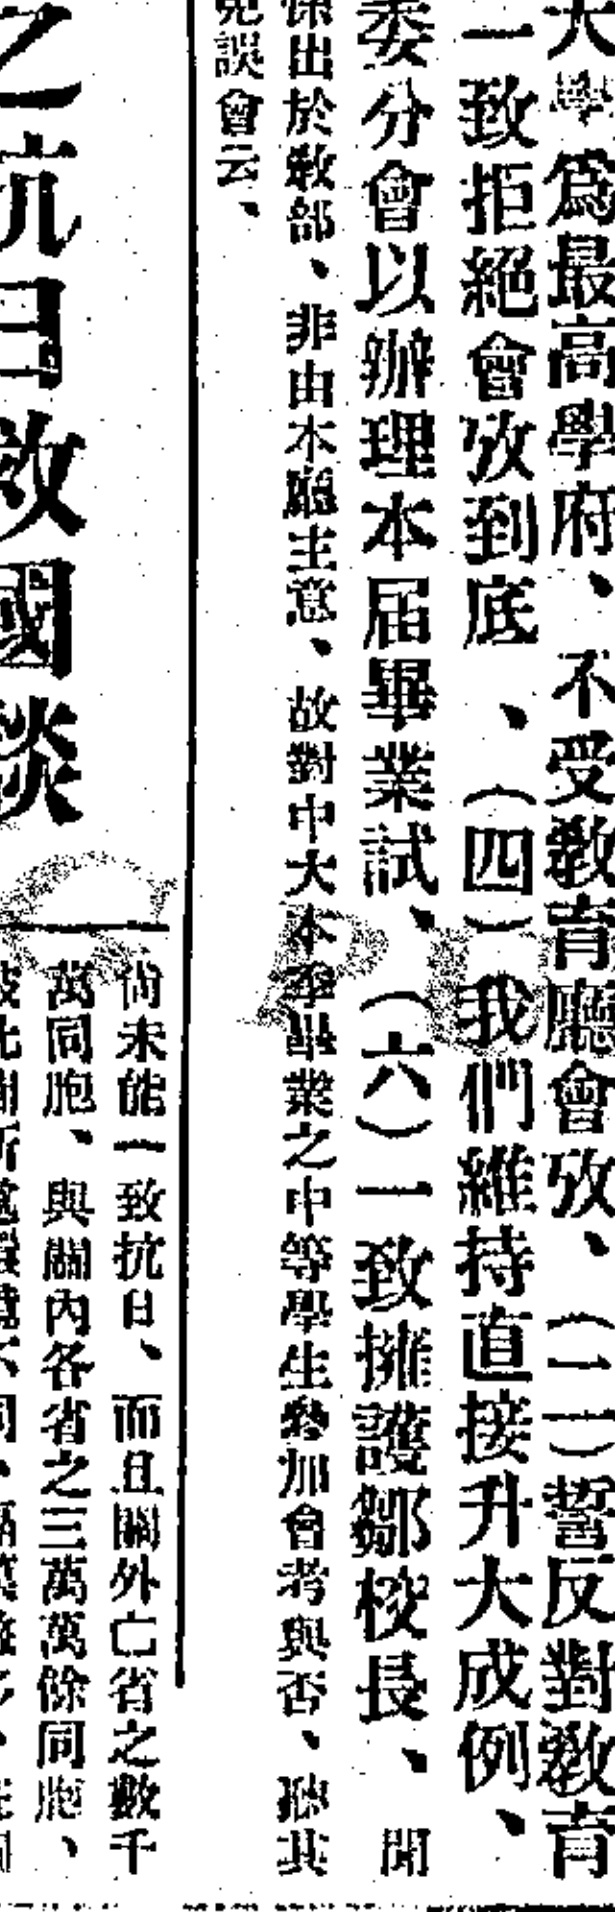 大學爲最高學府、不受教育廳會攷、(二)誓反對教育
一致拒絕會攷到底、(四)我們維持直接升大成例、
委分會以辦理本届畢業試、(六)一致擁護鄒校長、聞
係出於敎部、非由本廳主意、故對中大本季畢業之中等學生參加會考與否、聽其
免誤會云、
之抗日救國談
尚未能一致抗日、而且關外亡省之數千
萬同胞、與關內各省之三萬萬餘同胞、
彼此間所處環境不同、隔